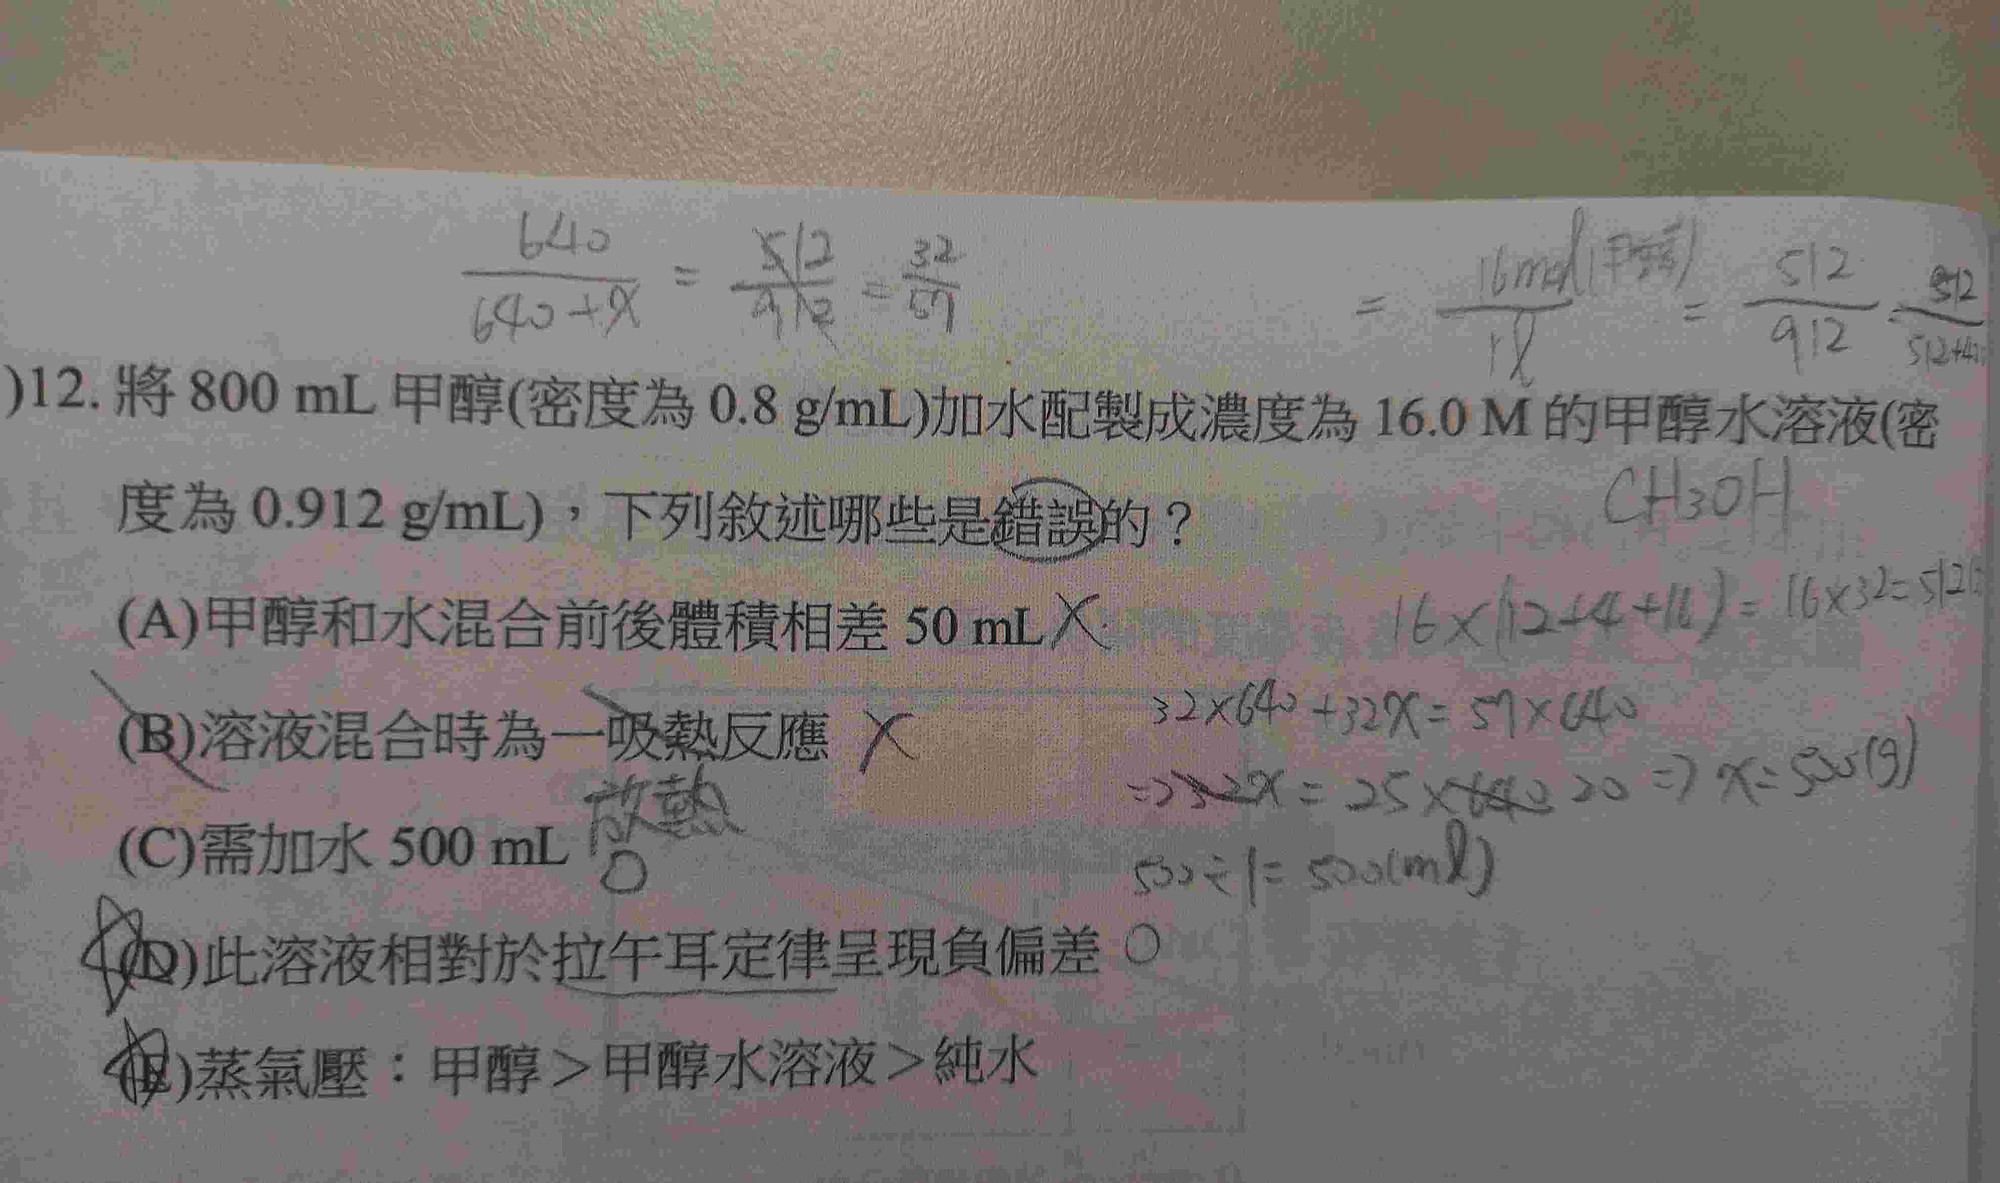 640/(640+x) = 512/912 = 32/57
= 16mol(甲醇)/1l = 512/912 = 512/512+40
)12. 將 800 mL 甲醇(密度為 0.8 g/mL)加水配製成濃度為 16.0 M 的甲醇水溶液(密
度為 0.912 g/mL)，下列敘述哪些是錯誤的？
CH3OH
(A)甲醇和水混合前後體積相差 50 mL X
16×(12+4+16) = 16×32=512
(B)溶液混合時為一吸熱反應 X
放熱
32×640+32x = 57×640
=>32x = 25×640 20 => x=500(g)
(C)需加水 500 mL O
500÷1=500(ml)
(D)此溶液相對於拉午耳定律呈現負偏差 O
(E)蒸氣壓：甲醇＞甲醇水溶液＞純水